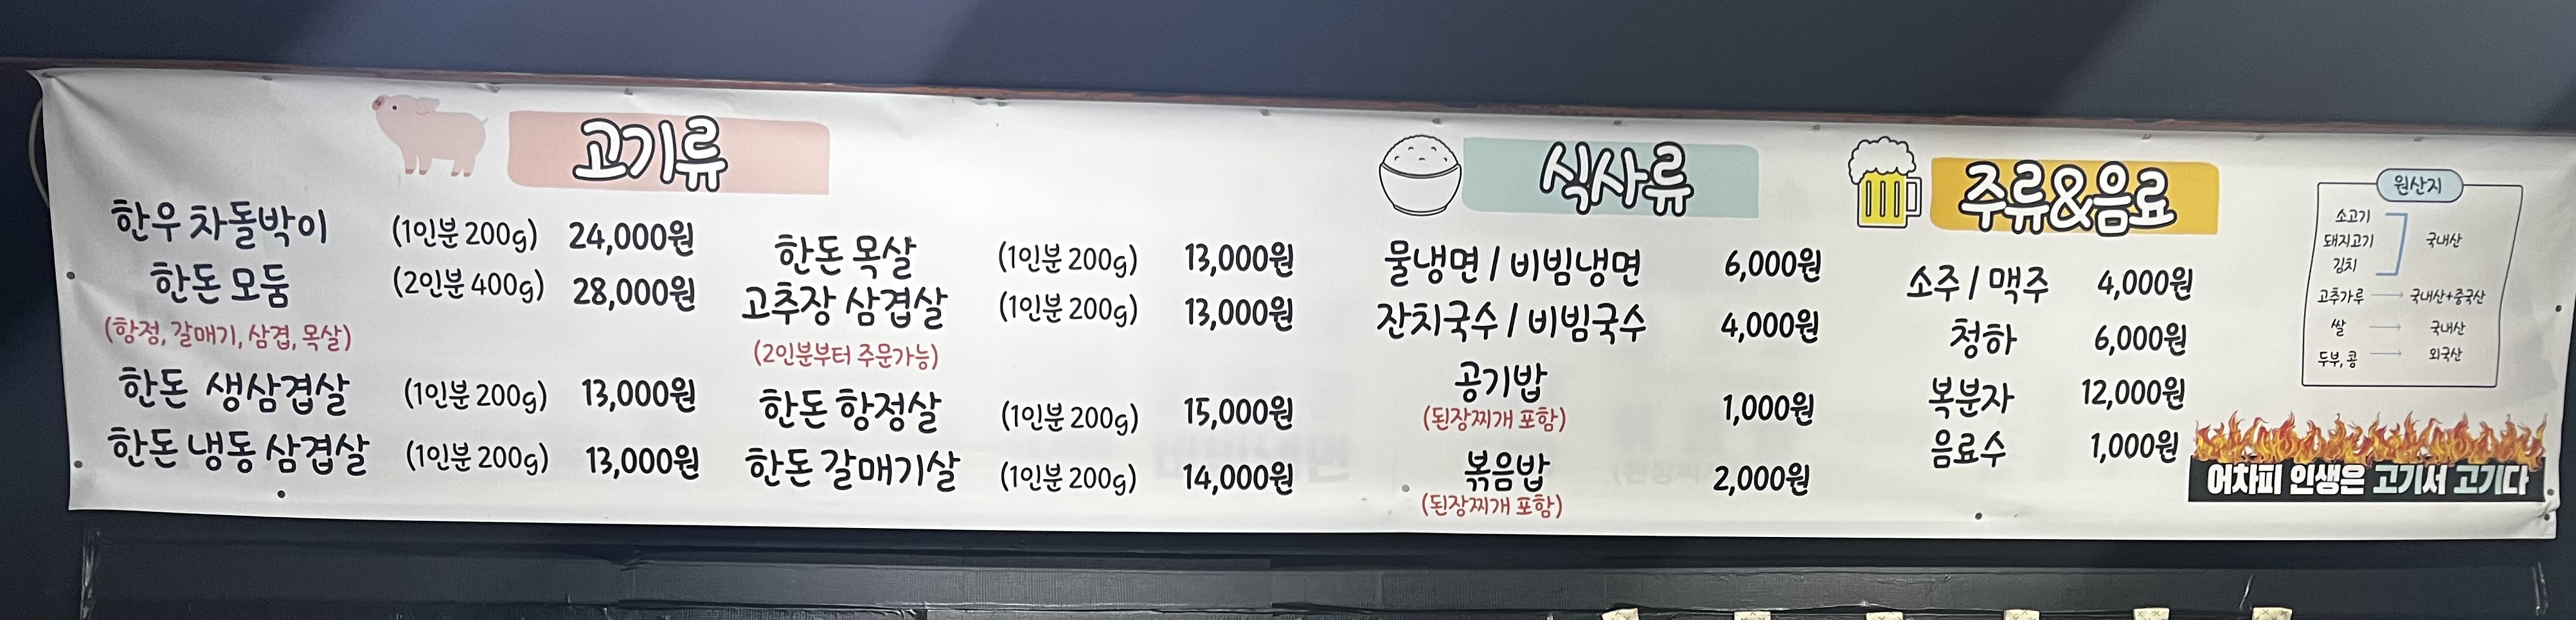 고기류
한우 차돌박이 (1인분 200g) 24,000원
한돈 모둠 (2인분 400g) 28,000원
(항정, 갈매기, 삼겹, 목살)
한돈 생삼겹살 (1인분 200g) 13,000원
한돈 냉동 삼겹살 (1인분 200g) 13,000원
한돈 목살 (1인분 200g) 13,000원
고추장 삼겹살 (1인분 200g) 13,000원
(2인분부터 주문가능)
한돈 항정살 (1인분 200g) 15,000원
한돈 갈매기살 (1인분 200g) 14,000원
식사류
물냉면 / 비빔냉면 6,000원
잔치국수 / 비빔국수 4,000원
공기밥 1,000원
(된장찌개 포함)
볶음밥 2,000원
(된장찌개 포함)
주류&음료
소주 / 맥주 4,000원
청하 6,000원
복분자 12,000원
음료수 1,000원
원산지
소고기
돼지고기 국내산
김치
고추가루 국내산+중국산
쌀 국내산
두부, 콩 외국산
어차피 인생은 고기서 고기다